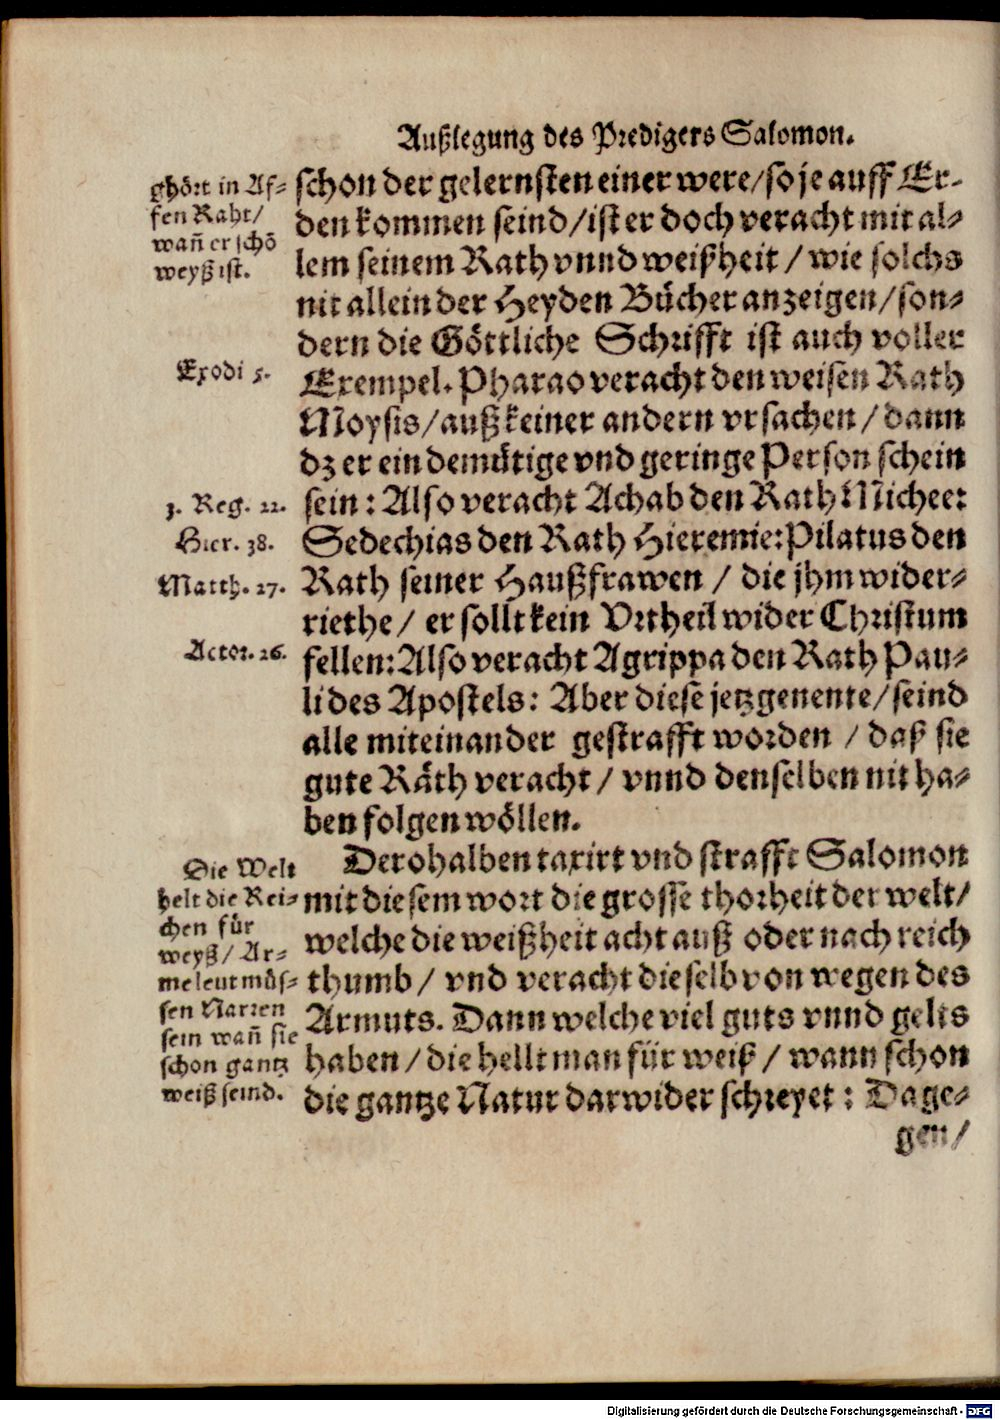 Außlegung des Predigers Salomon.
ghört in Af-
fen Raht/
wañ er schö
weyß ist.
schon der gelernsten einer were/so je auff Er-
den kommen seind/ist er doch veracht mit al-
lem seinem Rath vnnd weißheit / wie solchs
nit allein der Heyden Bücher anzeigen/son-
dern die Göttliche Schrifft ist auch voller
Exodi 5.
Exempel. Pharao veracht den weisen Rath
Moysis/auß keiner andern vrsachen / dann
dz er ein demütige vnd geringe Person schein
3. Reg. 22.
sein : Also veracht Achab den Rath Michee:
Hier. 38.
Sedechias den Rath Hieremie: Pilatus den
Matth. 27.
Rath seiner Haußfrawen / die jhm wider-
riethe / er sollt kein Vrtheil wider Christum
Actor. 26.
fellen: Also veracht Agrippa den Rath Pau-
li des Apostels : Aber diese jetzgenente/seind
alle miteinander gestrafft worden / daß sie
gute Räth veracht / vnnd denselben nit ha-
ben folgen wöllen.
Die Welt
helt die Rei-
chen für
weyß/ Ar-
me leut müs-
sen Narren
sein wañ sie
schon gantz
weiß seind.
Derohalben taxirt vnd strafft Salomon
mit diesem wort die grosse thorheit der welt/
welche die weißheit acht auß oder nach reich
thumb / vnd veracht dieselb von wegen des
Armuts. Dann welche viel guts vnnd gelts
haben / die hellt man für weiß / wann schon
die gantze Natur darwider schreyet : Dage-
gen/
Digitalisierung gefördert durch die Deutsche Forschungsgemeinschaft - DFG